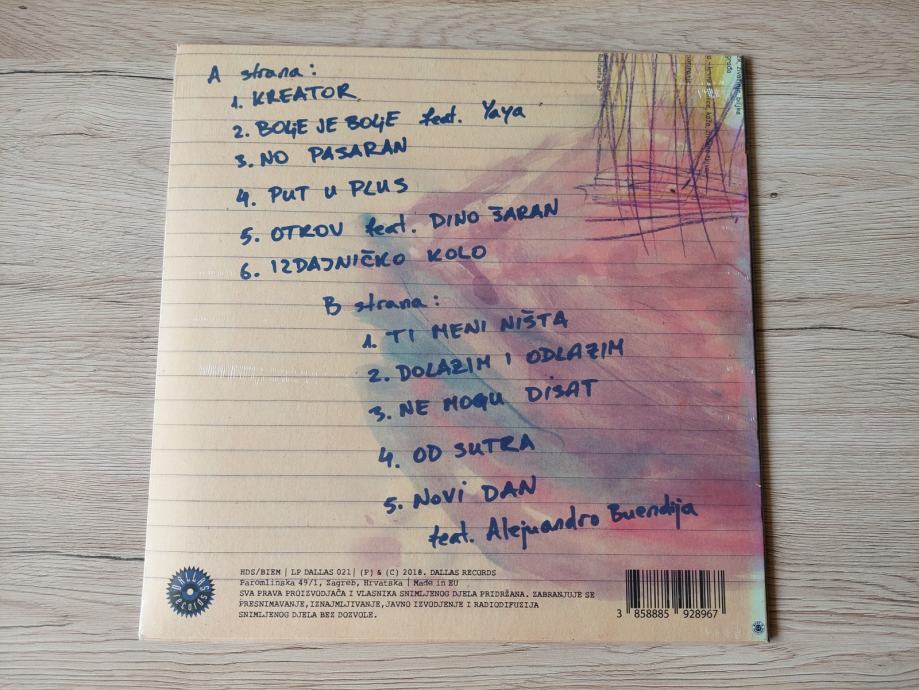 A strana:
1. KREATOR
2. BOLJE JE BOLJE feat. Yaya
3. NO PASARAN
4. PUT U PLUS
5. OTROV feat. DINO ŠARAN
6. IZDAJNIČKO KOLO
B strana:
1. TI MENI NIŠTA
2. DOLAZIM I ODLAZIM
3. NE MOGU DISAT
4. OD SUTRA
5. NOVI DAN
feat. Alejuandro Buendija
DALLAS RECORDS
HDS/BIEM | LP DALLAS 021| (P) & (C) 2018. DALLAS RECORDS
Paromlinska 49/1, Zagreb, Hrvatska | Made in EU
SVA PRAVA PROIZVODJAČA I VLASNIKA SNIMLJENOG DJELA PRIDRŽANA. ZABRANJUJE SE
PRESNIMAVANJE, IZNAJMLJIVANJE, JAVNO IZVODJENJE I RADIODIFUZIJA
SNIMLJENOG DJELA BEZ DOZVOLE.
3 858885 928967